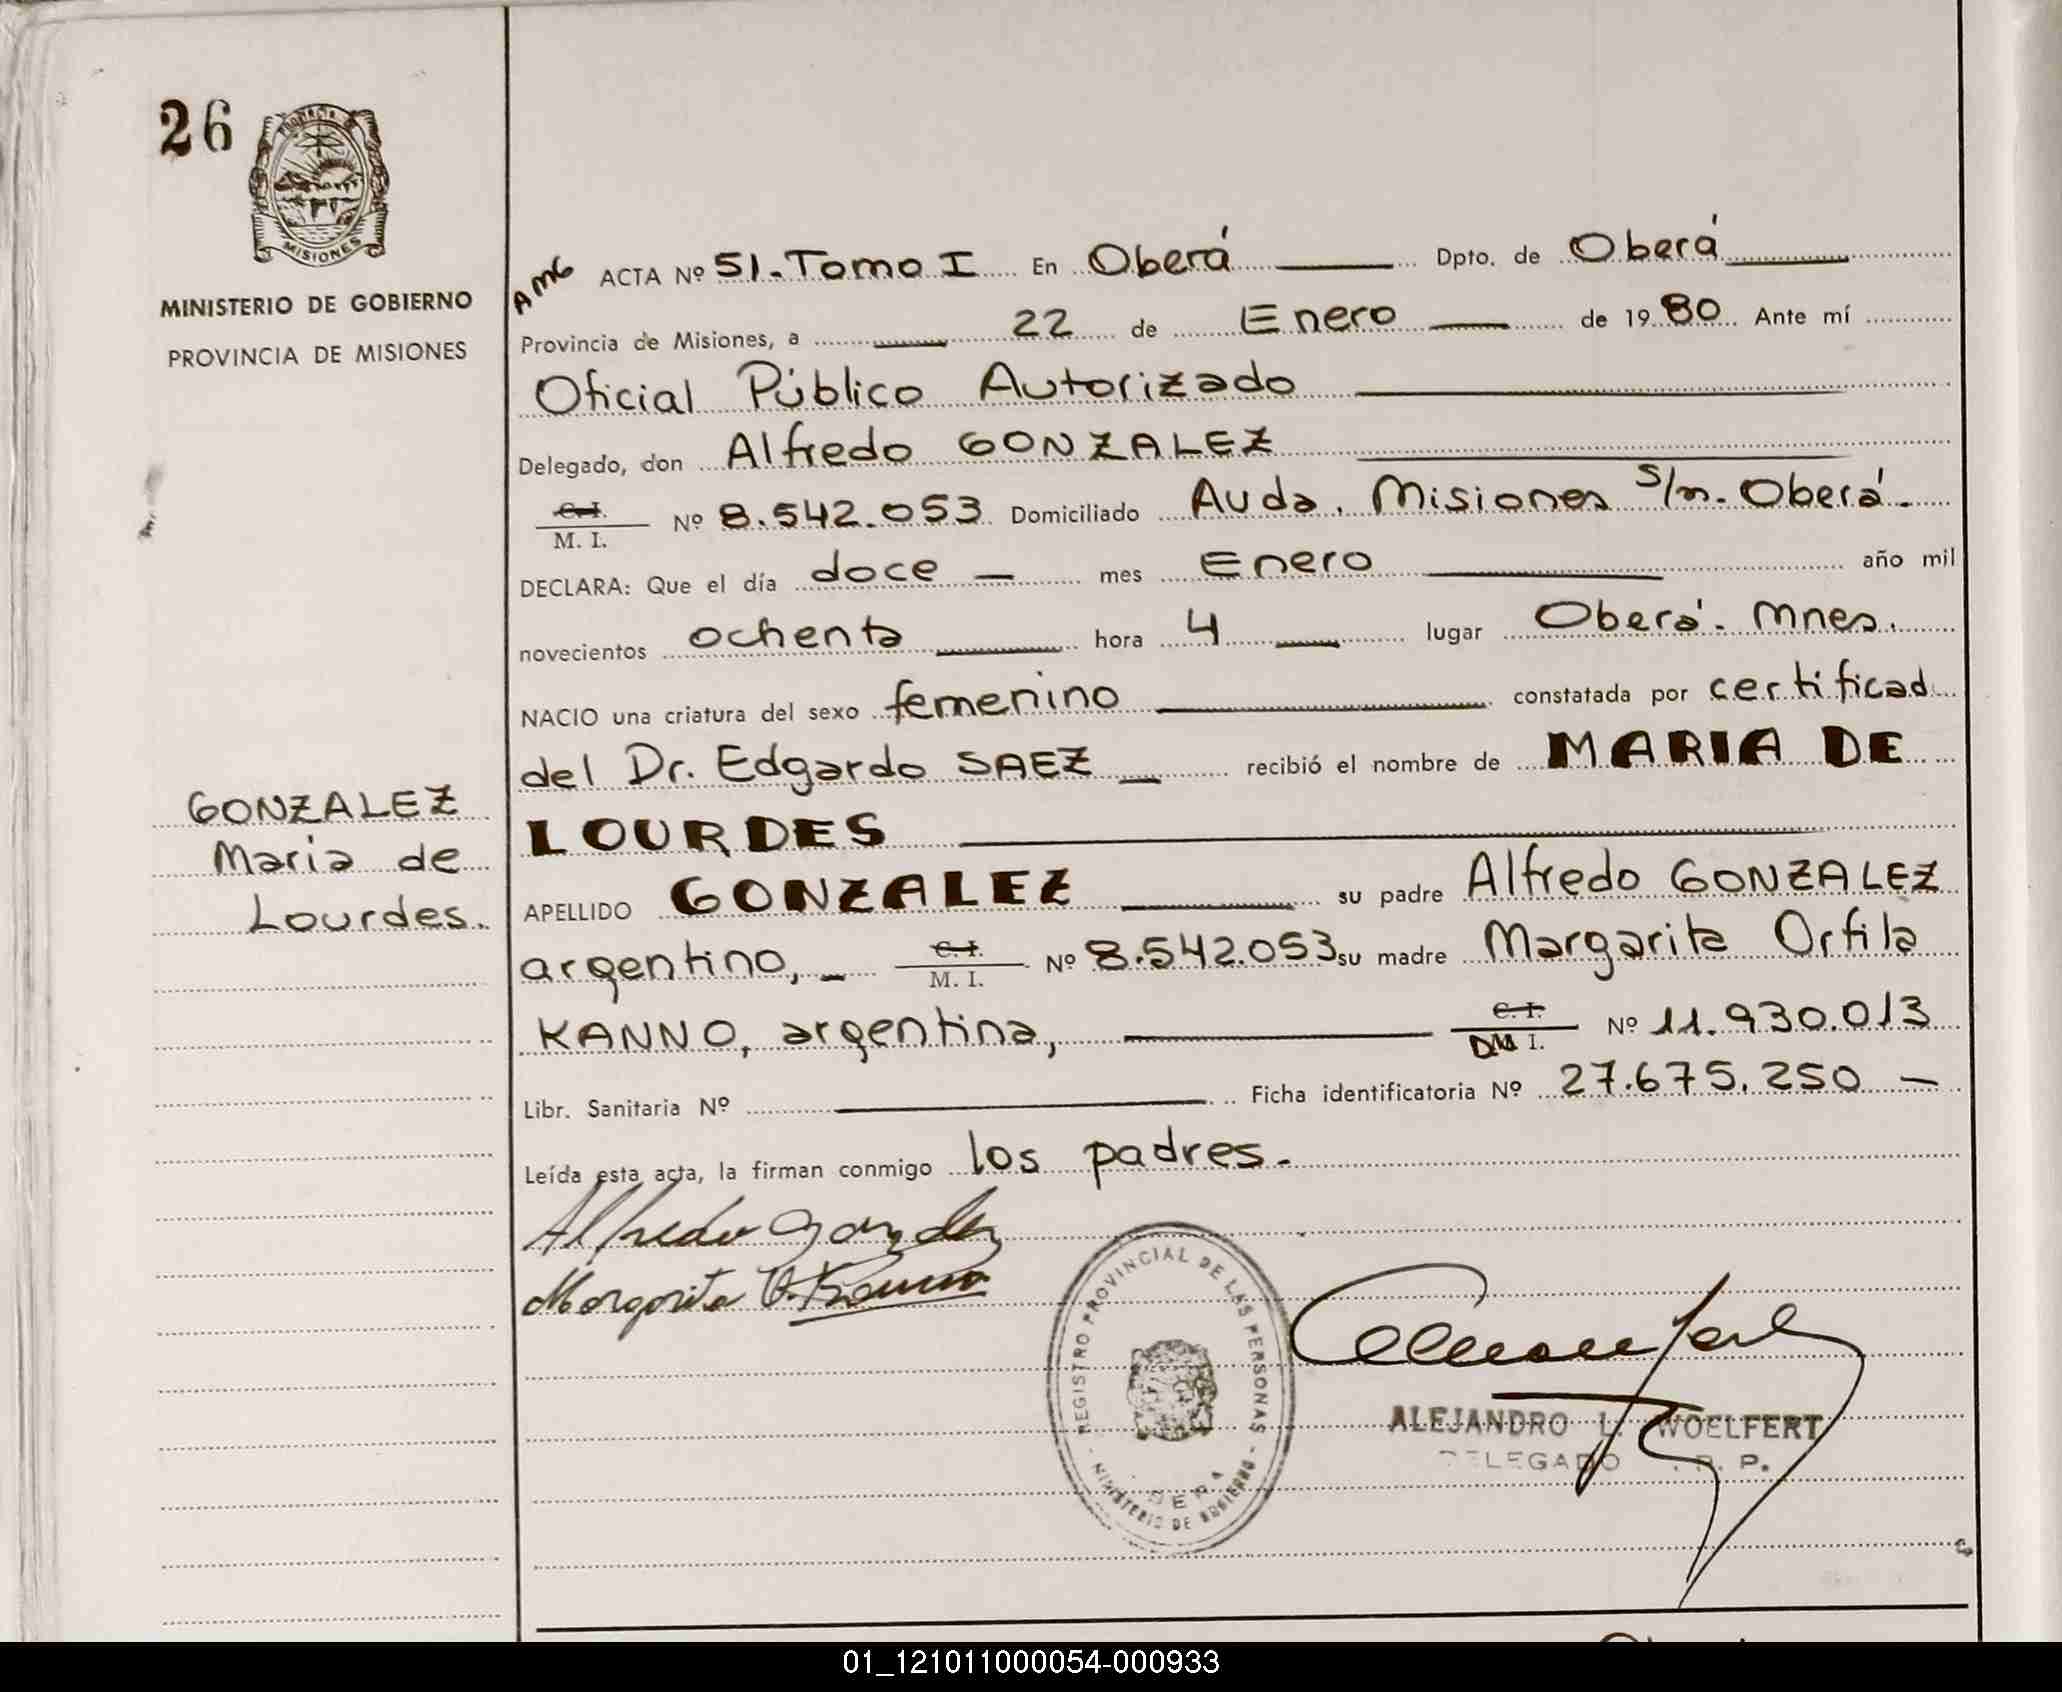 26
PROVINCIA DE
MISIONES
MINISTERIO DE GOBIERNO
PROVINCIA DE MISIONES
GONZALEZ
Maria de
Lourdes.
AMG ACTA Nº 51.Tomo I En Oberá Dpto. de Oberá
Provincia de Misiones, a 22 de Enero de 1980 Ante mí
Oficial Público Autorizado
Delegado, don Alfredo GONZALEZ
C. I.
M. I. Nº 8.542.053 Domiciliado Avda. Misiones s/n. Oberá.
DECLARA: Que el día doce mes Enero año mil
novecientos ochenta hora 4 lugar Oberá. Mnes.
NACIO una criatura del sexo femenino constatada por certificad
del Dr. Edgardo SAEZ recibió el nombre de MARIA DE
LOURDES
APELLIDO GONZALEZ su padre Alfredo GONZALEZ
argentino, C. I. M. I. Nº 8.542.053 su madre Margarita Orfila
KANNO, argentina, C. I. DM I. Nº 11.930.013
Libr. Sanitaria Nº Ficha identificatoria Nº 27.675.250
Leída esta acta, la firman conmigo los padres.
Alfredo Gonzalez
Margarita O. Kanno
REGISTRO PROVINCIAL DE LAS PERSONAS
MINISTERIO DE GOBIERNO
ALEJANDRO L. WOELFERT
DELEGADO R. P.
01_121011000054-000933